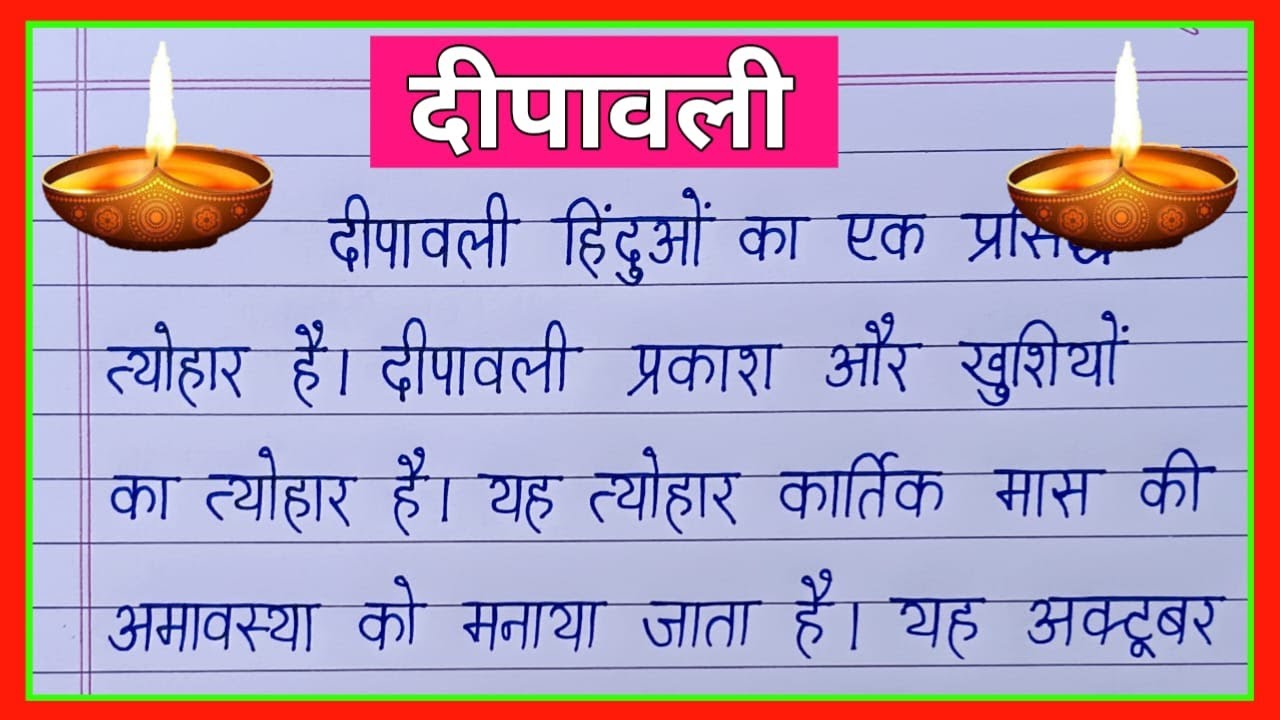 दीपावली
दीपावली हिंदुओं का एक प्रसिद्ध
त्योहार है। दीपावली प्रकाश और खुशियों
का त्योहार है। यह त्योहार कार्तिक मास की
अमावस्या को मनाया जाता है। यह अक्टूबर